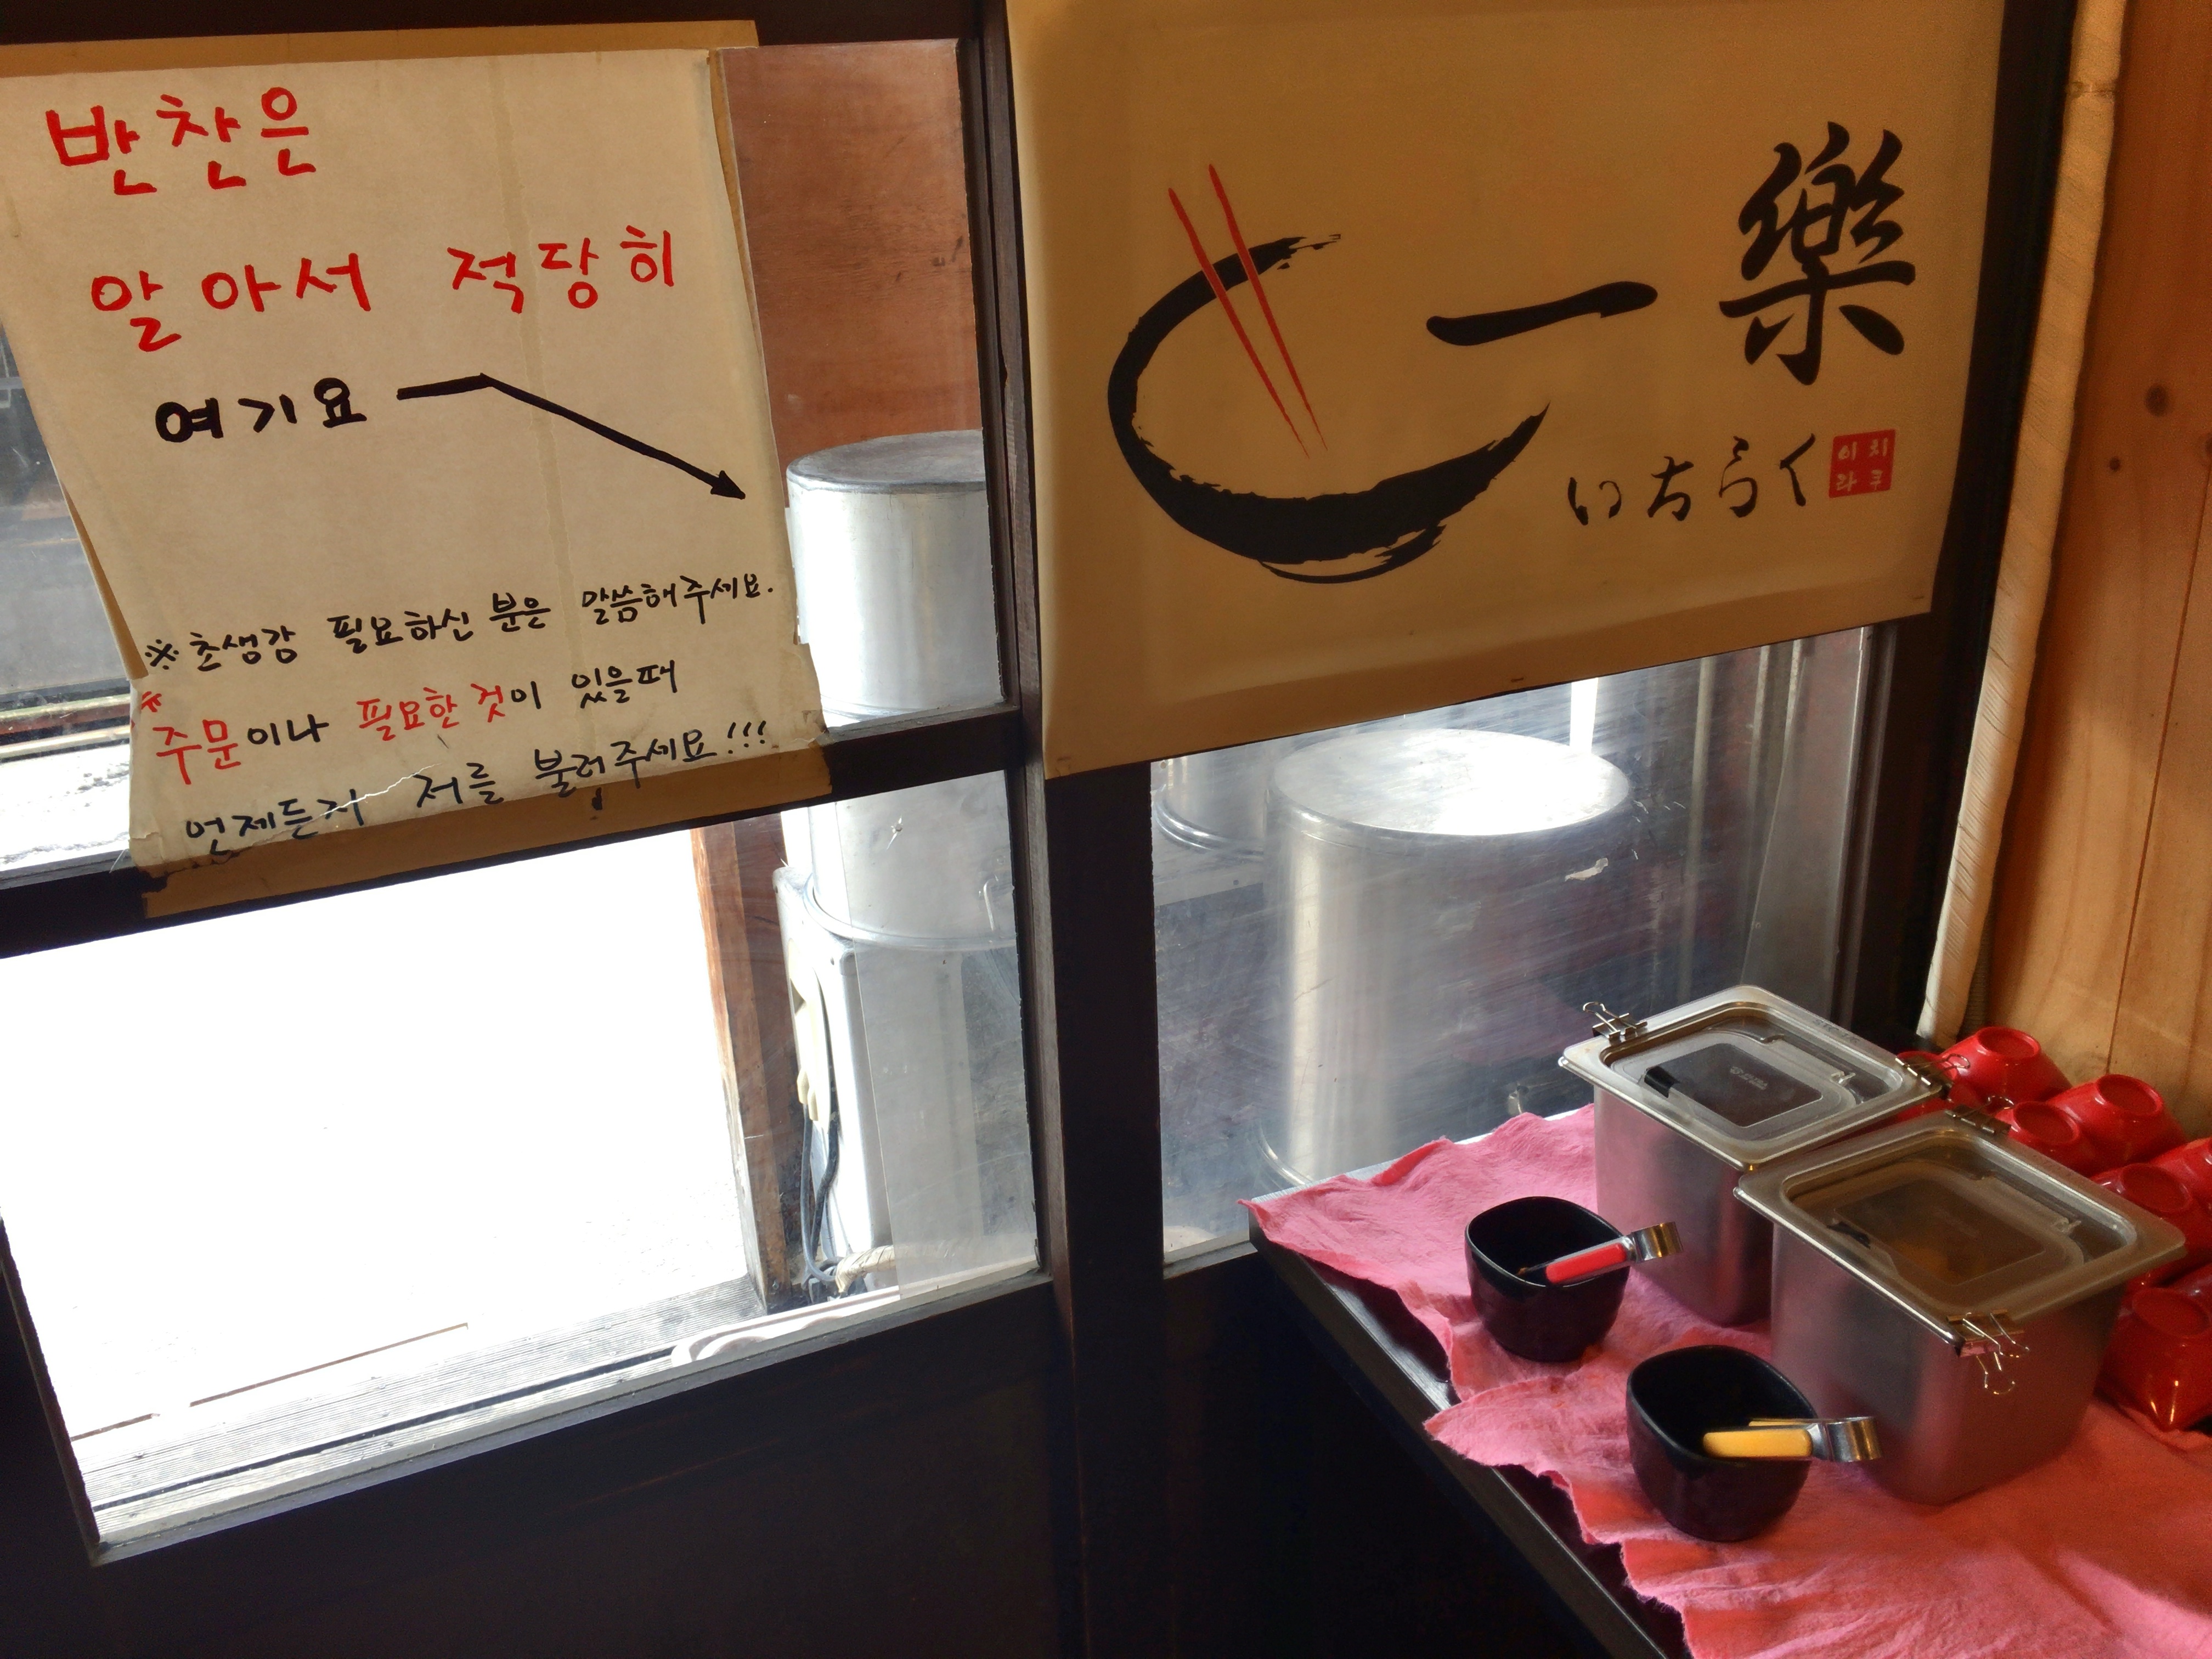 반찬은
알아서 적당히
여기요
※ 초생강 필요하신 분은 말씀해주세요.
※
주문이나 필요한 것이 있을때
언제든지 저를 불러주세요!!!
一樂
いちらく
이치
라쿠